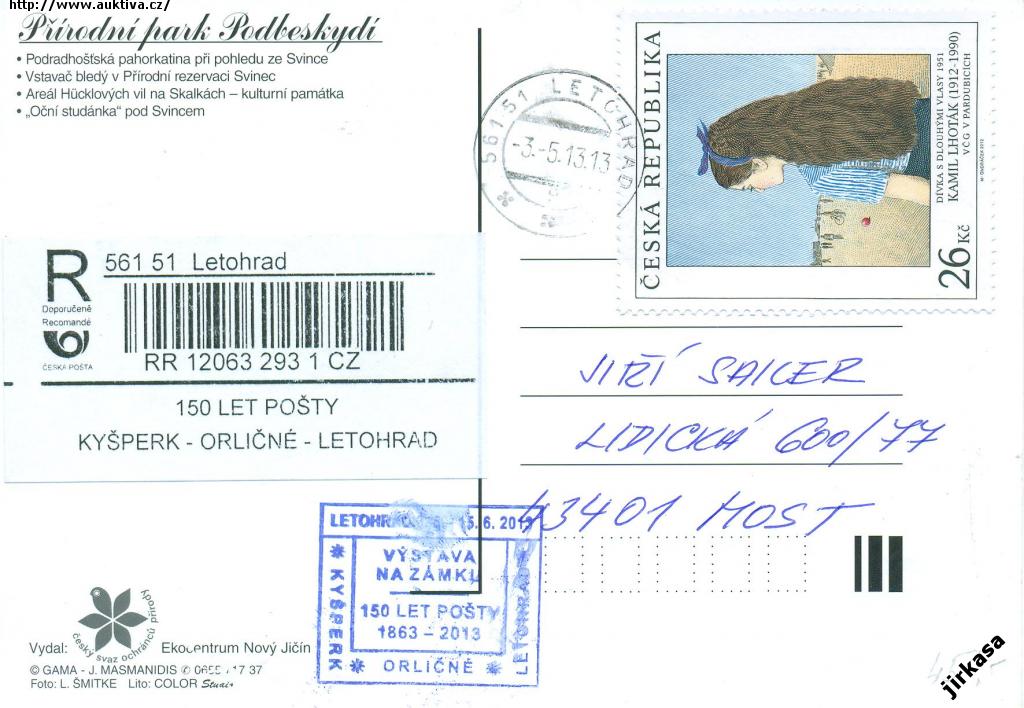 http://www.auktiva.cz/
Přírodní park Podbeskydí
• Podradhošťská pahorkatina při pohledu ze Svince
• Vstavač bledý v Přírodní rezervaci Svinec
• Areál Hücklových vil na Skalkách – kulturní památka
• „Oční studánka“ pod Svincem
56151 LETOHRAD
-3.-5.13.13
ČESKÁ REPUBLIKA
DÍVKA S DLOUHÝMI VLASY 1951
KAMIL LHOTÁK (1912-1990)
VČG V PARDUBICÍCH
26 Kč
R
Doporučeně
Recomandé
ČESKÁ POŠTA
561 51 Letohrad
RR 12063 293 1 CZ
150 LET POŠTY
KYŠPERK - ORLIČNÉ - LETOHRAD
JIŘÍ SAILER
LIDICKÁ 600/77
43401 MOST
LETOHRAD 5.6.2013
VÝSTAVA
NA ZÁMKU
150 LET POŠTY
1863 – 2013
KYŠPERK
ORLIČNÉ
LETOHRAD
český svaz ochránců přírody
Vydal: Ekocentrum Nový Jičín
© GAMA - J. MASMANIDIS
Foto: L. ŠMITKE Lito: COLOR Studio
jirkasa